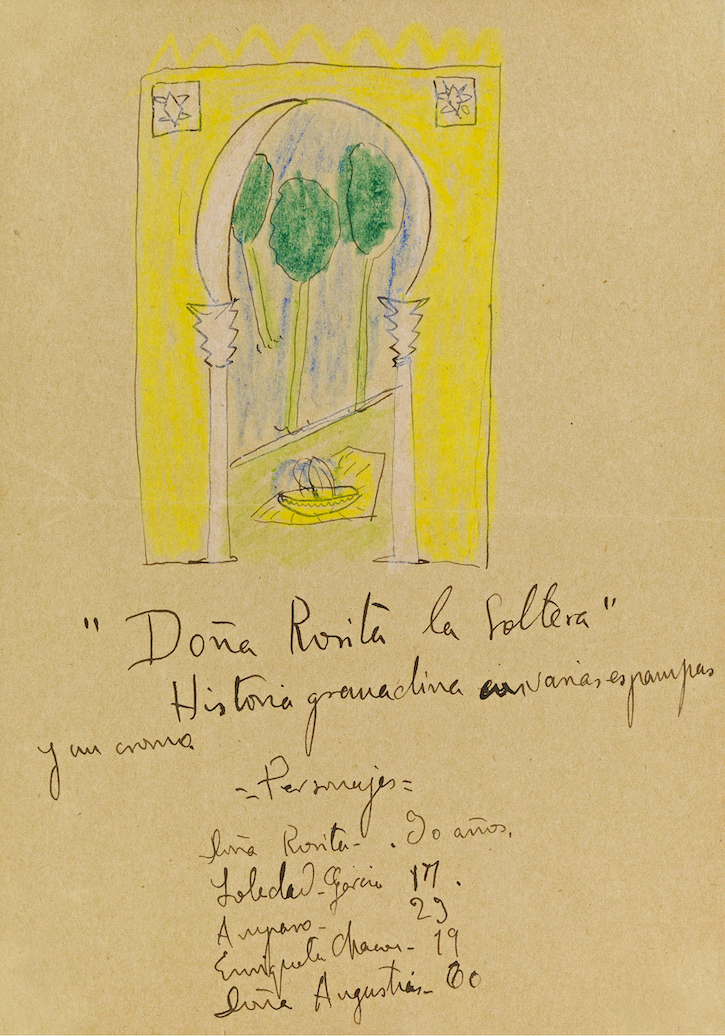 "Doña Rosita la Soltera"
Historia granadina en varias espampas
y un cromo
=Personajes=
Doña Rosita- . 30 años.
Soledad-García 17.
Amparo- 23
Enriqueta Chacon- 19
Doña Angustias- 60